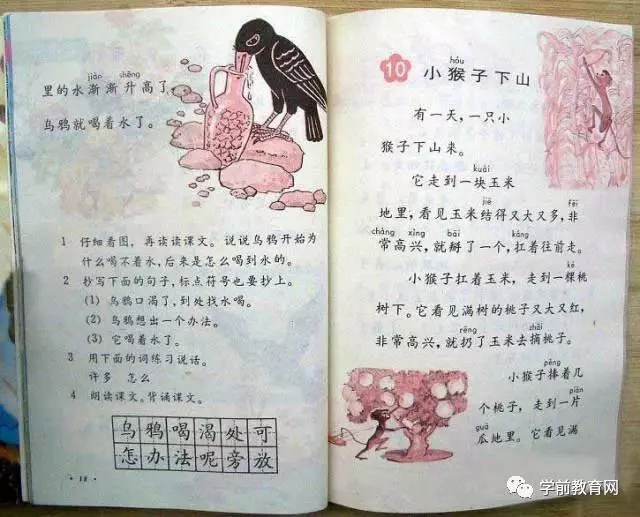 jiàn shēng
里的水渐渐升高了，
乌鸦就喝着水了。
1 仔细看图，再读读课文。说说乌鸦开始为
什么喝不着水，后来是怎么喝到水的。
2 抄写下面的句子，标点符号也要抄上。
(1) 乌鸦口渴了，到处找水喝。
(2) 乌鸦想出一个办法。
(3) 它喝着水了。
3 用下面的词练习说话。
许多 怎么
4 朗读课文。背诵课文。
乌鸦喝渴处可
怎办法呢旁放
· 18 ·
hóu
10 小猴子下山
有一天，一只小
猴子下山来。
kuài
它走到一块玉米
jiē fēi
地里，看见玉米结得又大又多，非
cháng xìng bāi káng
常高兴，就掰了一个，扛着往前走。
kē
小猴子扛着玉米，走到一棵桃
树下。它看见满树的桃子又大又红，
rēng zhāi
非常高兴，就扔了玉米去摘桃子。
pěng
小猴子捧着几
piàn
个桃子，走到一片
guā
瓜地里。它看见满
学前教育网